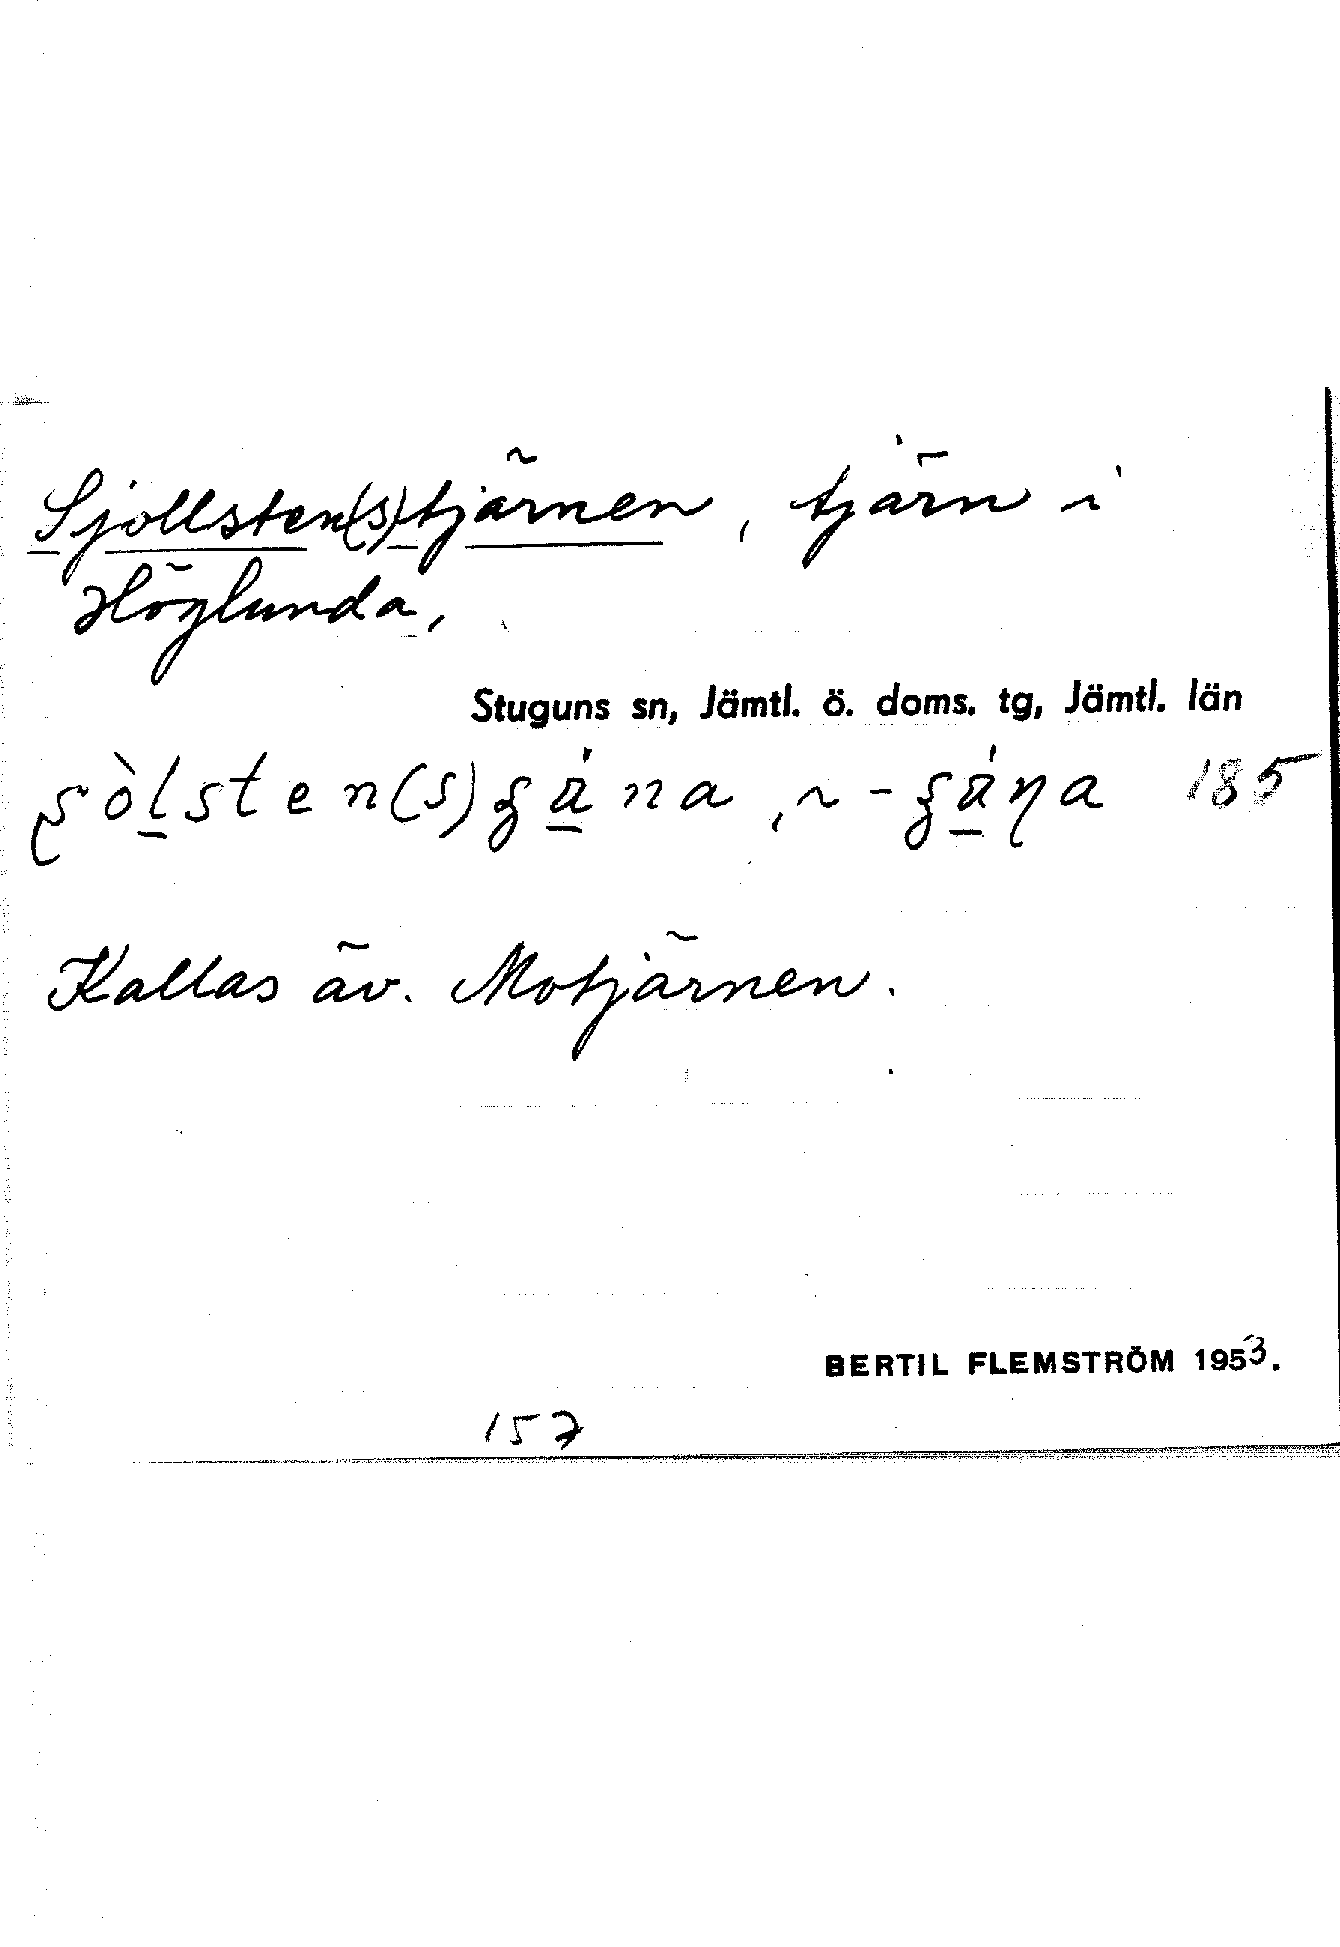 Sjollsten(s)tjärnen, tjärn i
Höglunda,
Stuguns sn, Jämtl. ö. doms. tg, Jämtl. län
185
Kallas äv. Motjärnen.
BERTIL FLEMSTRÖM 1953.
157